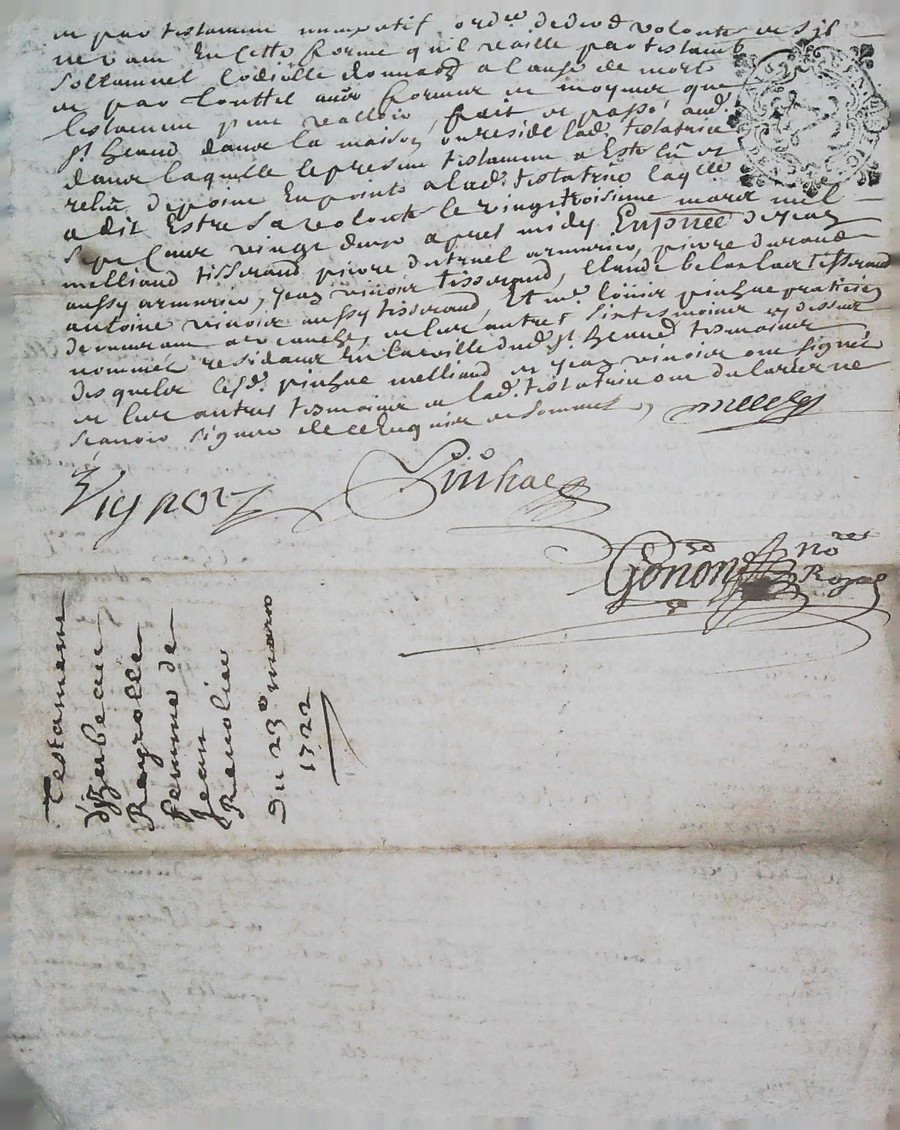 et par testament nuncupatif ord.re de dro.t volonté et s'il
ne vaut en cette forme qu'il vaille par testamt
sollemnel codicille donnaon a cause de mort
et par touttes autres formes et moyens que
testament peut valloir, fait et passé aud.
st heand dans la maison ou reside lad. testatrice
dans laquelle le present testament a esté lû et
relû de point en points a lad. testatrice laqlle
a dit estre sa volonté le vingttroisieme mars mil
sept cens vingt deux apres midy En pnce de jean
melliand tisserand, pierre dutruel armurier, pierre durand
aussy armurier, jean vinois tisserand, Claude tisserand
antoine vinois aussy tisserand, Et me loüis pinhac praticien
demeurant les autres tesmoins cy dessus
nommés residant En la ville dud. st heand tesmoins
desquels lesd. pinhac melliand et jean vinois ont signé
et les autres tesmoins et lad. testatrice ont declaré ne
scavoir signer de ce Enquis et sommés
Pinhac
Gonon no.re
Royal
Testament
d'Izabeau
Reyrolle
femme de
Jean
Reuolier
Du 23e mars
1722